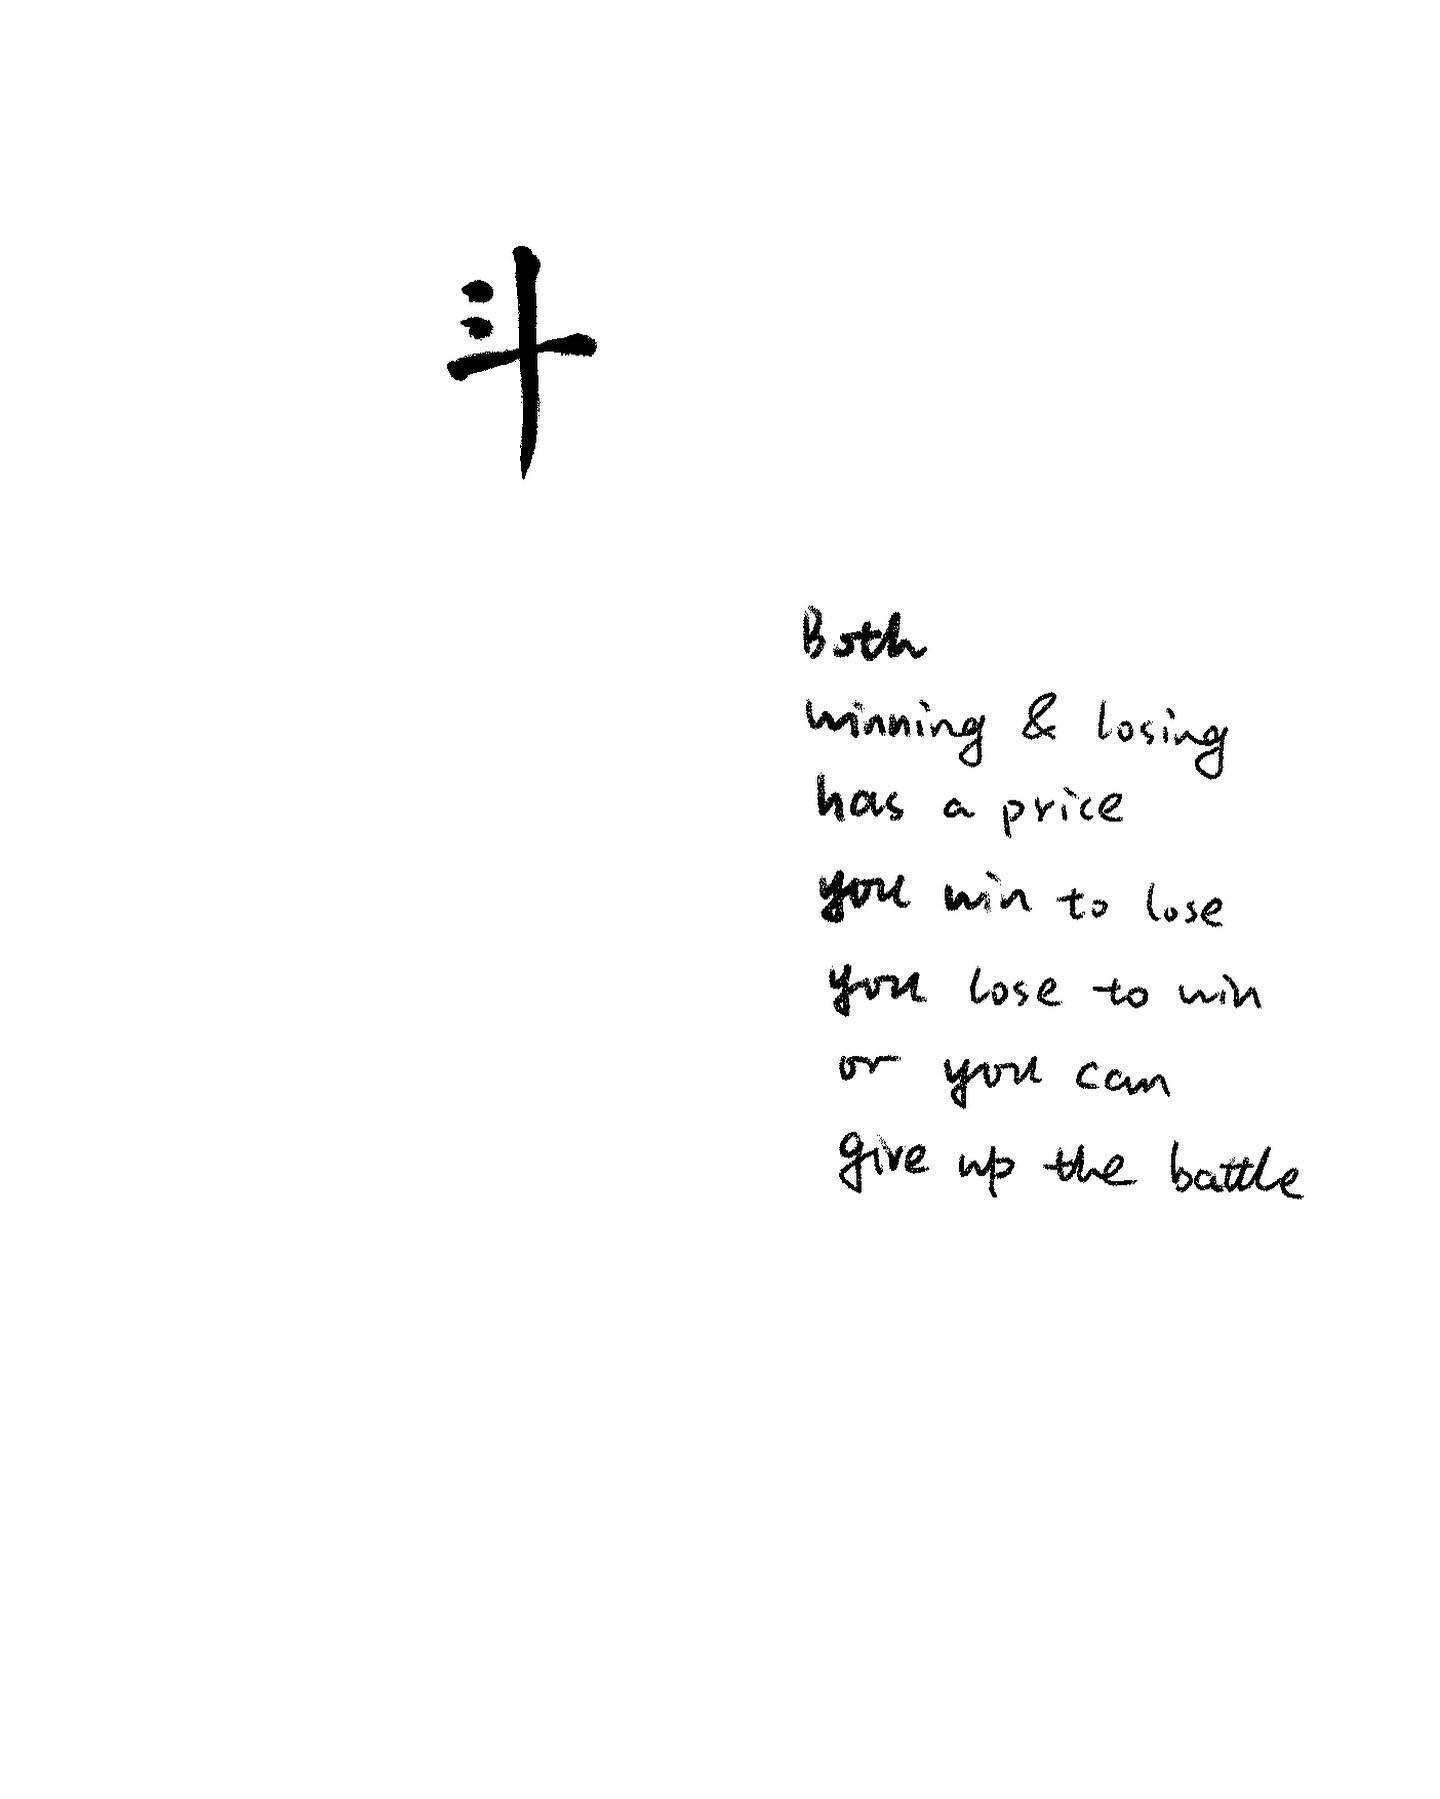 斗
Both
winning & losing
has a price
you win to lose
you lose to win
or you can
give up the battle